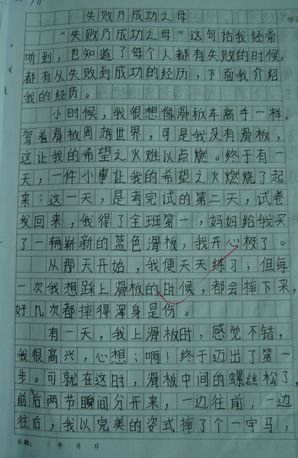 失败乃成功之母
“失败乃成功之母”这句话我经常
听到,也知道了每个人都有失败的时候,
都有从失败到成功的经历,下面我介绍
我的经历。
小时候,我很想像滑板车高手一样,
驾着滑板周游世界,可是我没有滑板,
这让我的希望之火难以点燃。终于有一
天,一件小事让我的希望之火燃烧了起
来:这一天,是考完试的第二天,试卷
发回来,我得了全班第一,妈妈给我买
了一辆崭新的蓝色滑板,我开心极了。
从那天开始,我便天天练习,但每
一次我想踩上滑板的时候,都会摔下来,
好几次都摔得浑身是伤。
有一天,我上滑板时,感觉不错,
我很高兴,心想:啊!终于迈出了第一
步。可就在这时,滑板中间的螺丝松了,
前后两节瞬间分开来,一边往前,一边
往后,我以完美的姿式摔了个一字马,
日期: 年 月 日